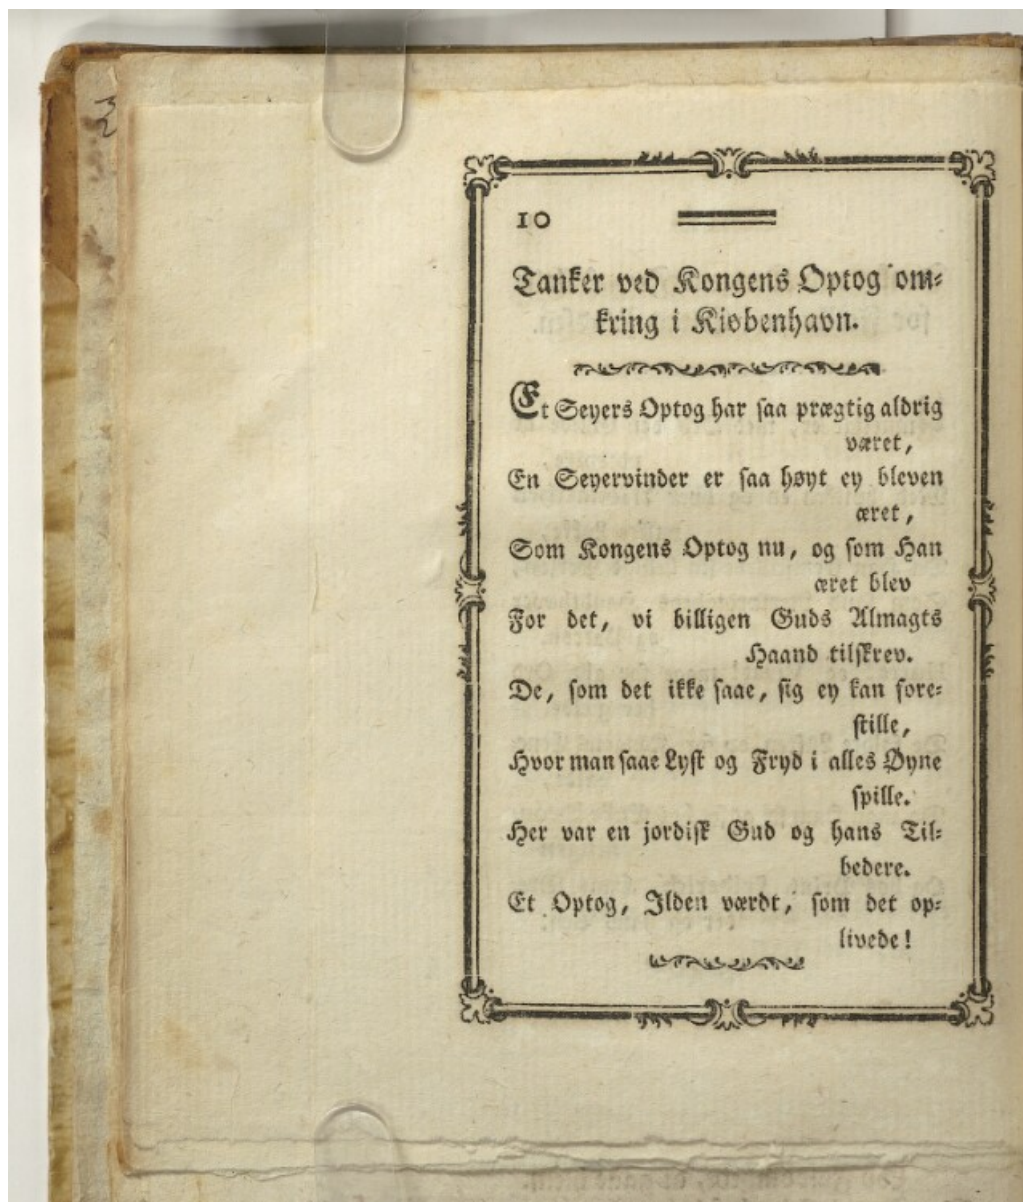 10
Tanker ved Kongens Optog om-
kring i Kiøbenhavn.
Et Seyers Optog har saa prægtig aldrig
været,
En Seyervinder er saa høyt ey bleven
æret,
Som Kongens Optog nu, og som Han
æret blev
For det, vi billigen Guds Almagts
Haand tilskrev.
De, som det ikke saae, sig ey kan fore-
stille,
Hvor man saae Lyst og Fryd i alles Øyne
spille.
Her var en jordisk Gud og hans Til-
bedere.
Et Optog, Ilden værdt, som det op-
livede!